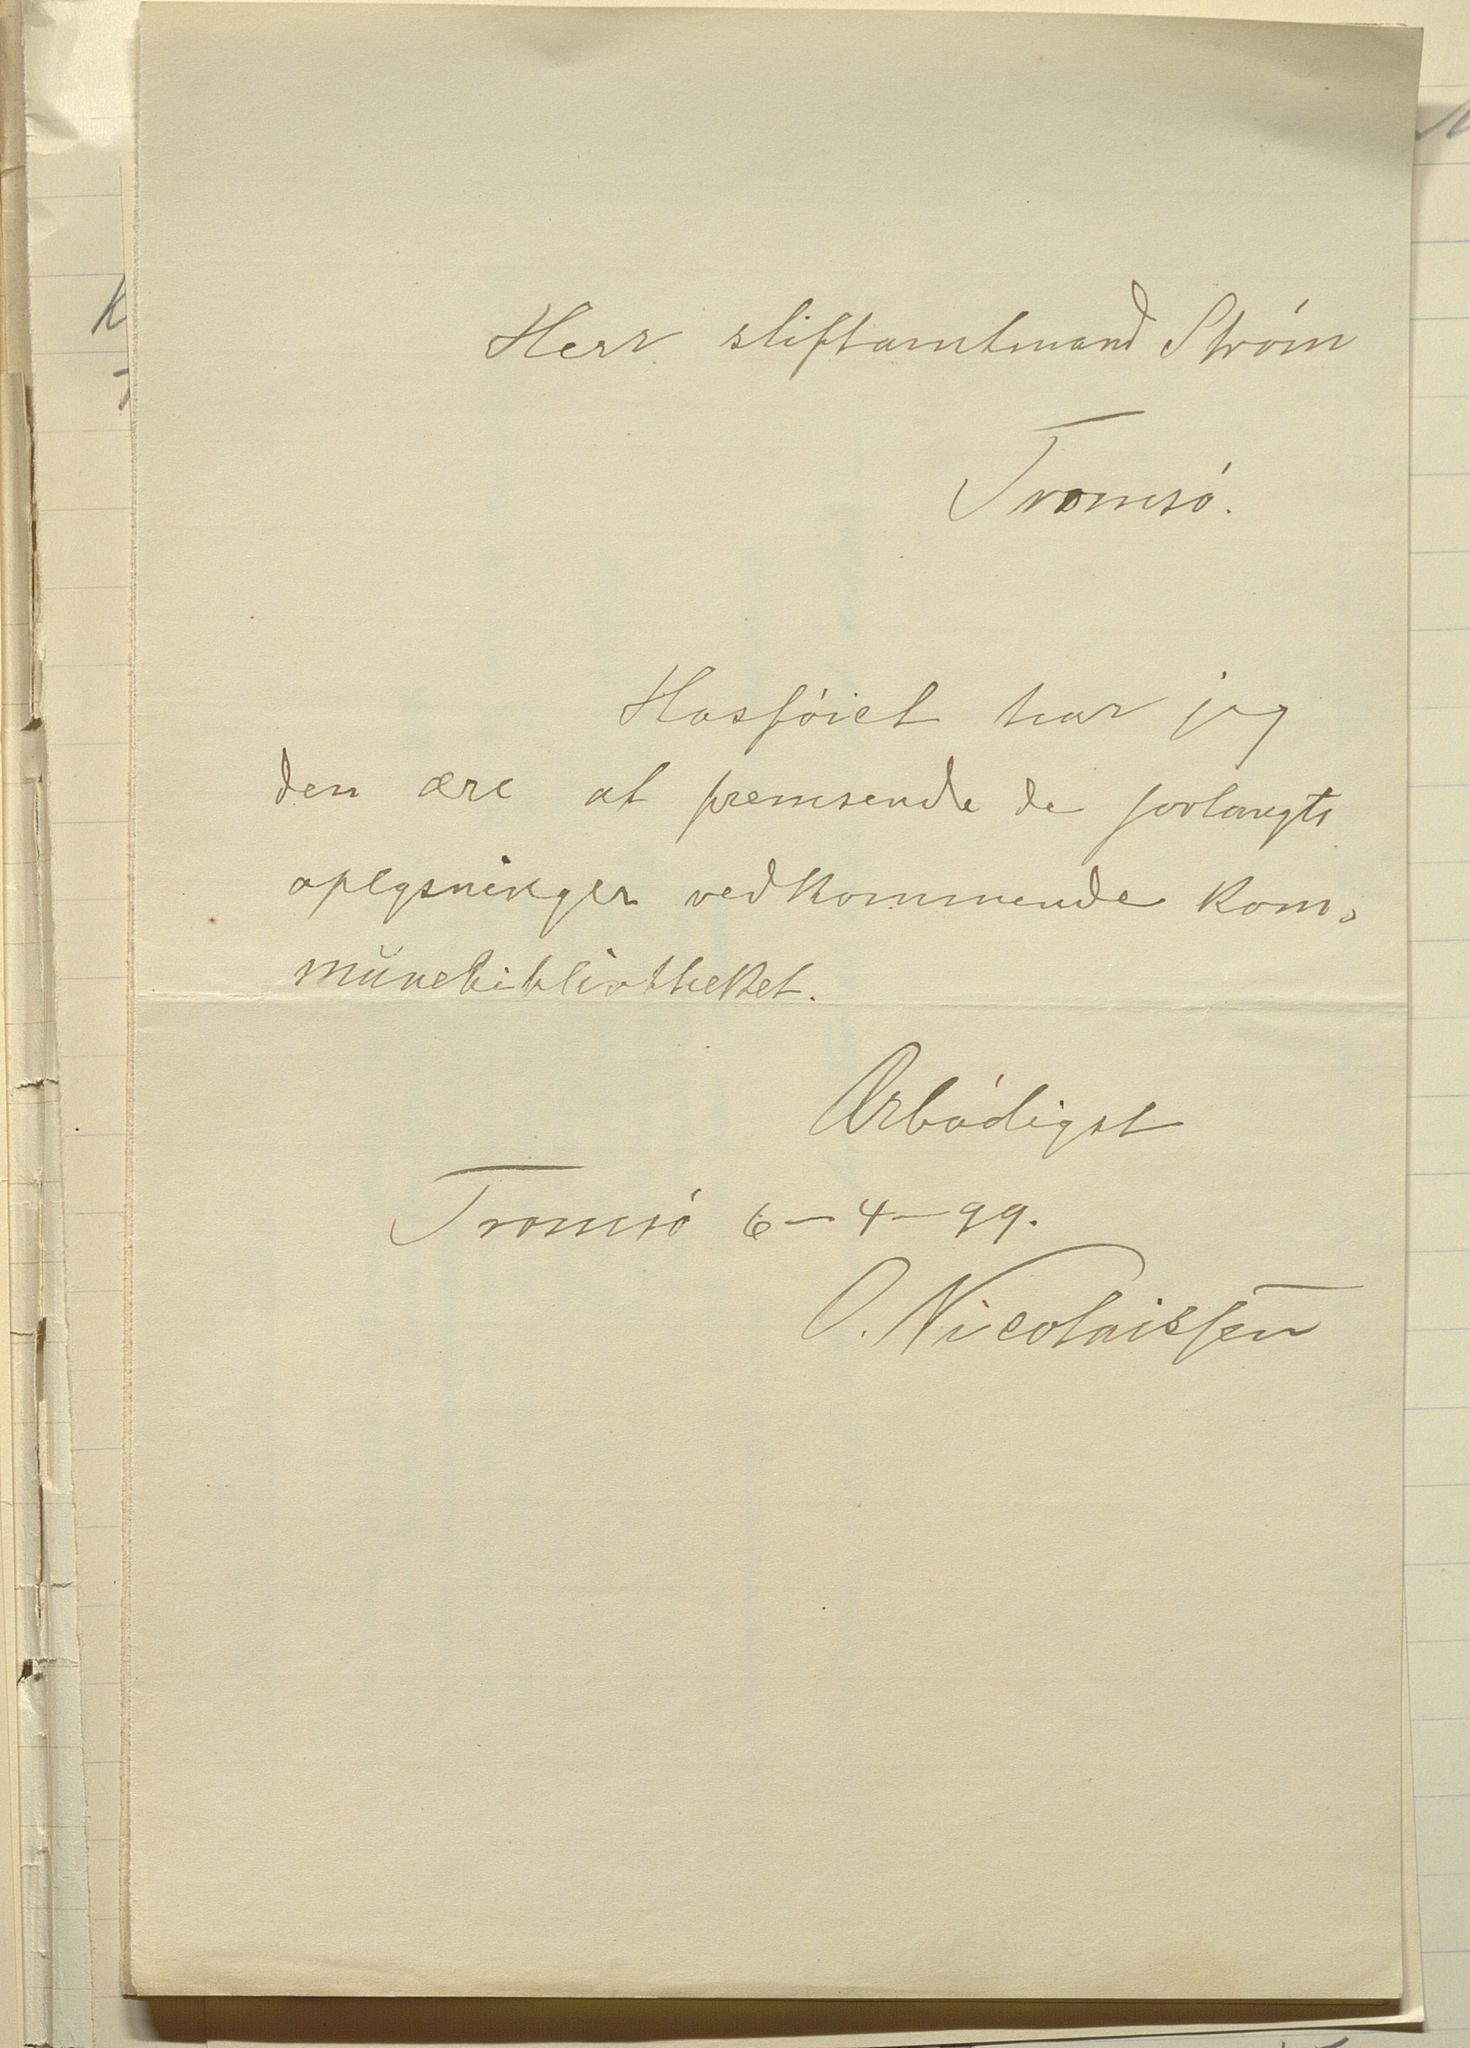 Herr stiftamtmand Strøm
Tromsó.
Hosfóiet har jeg
den ære at fremsende de forlangte
oplysninger vedkommende kom-
munebibliotheket.
Ærbódigst
Tromsó 6-4-99.
O. Nicolaissen